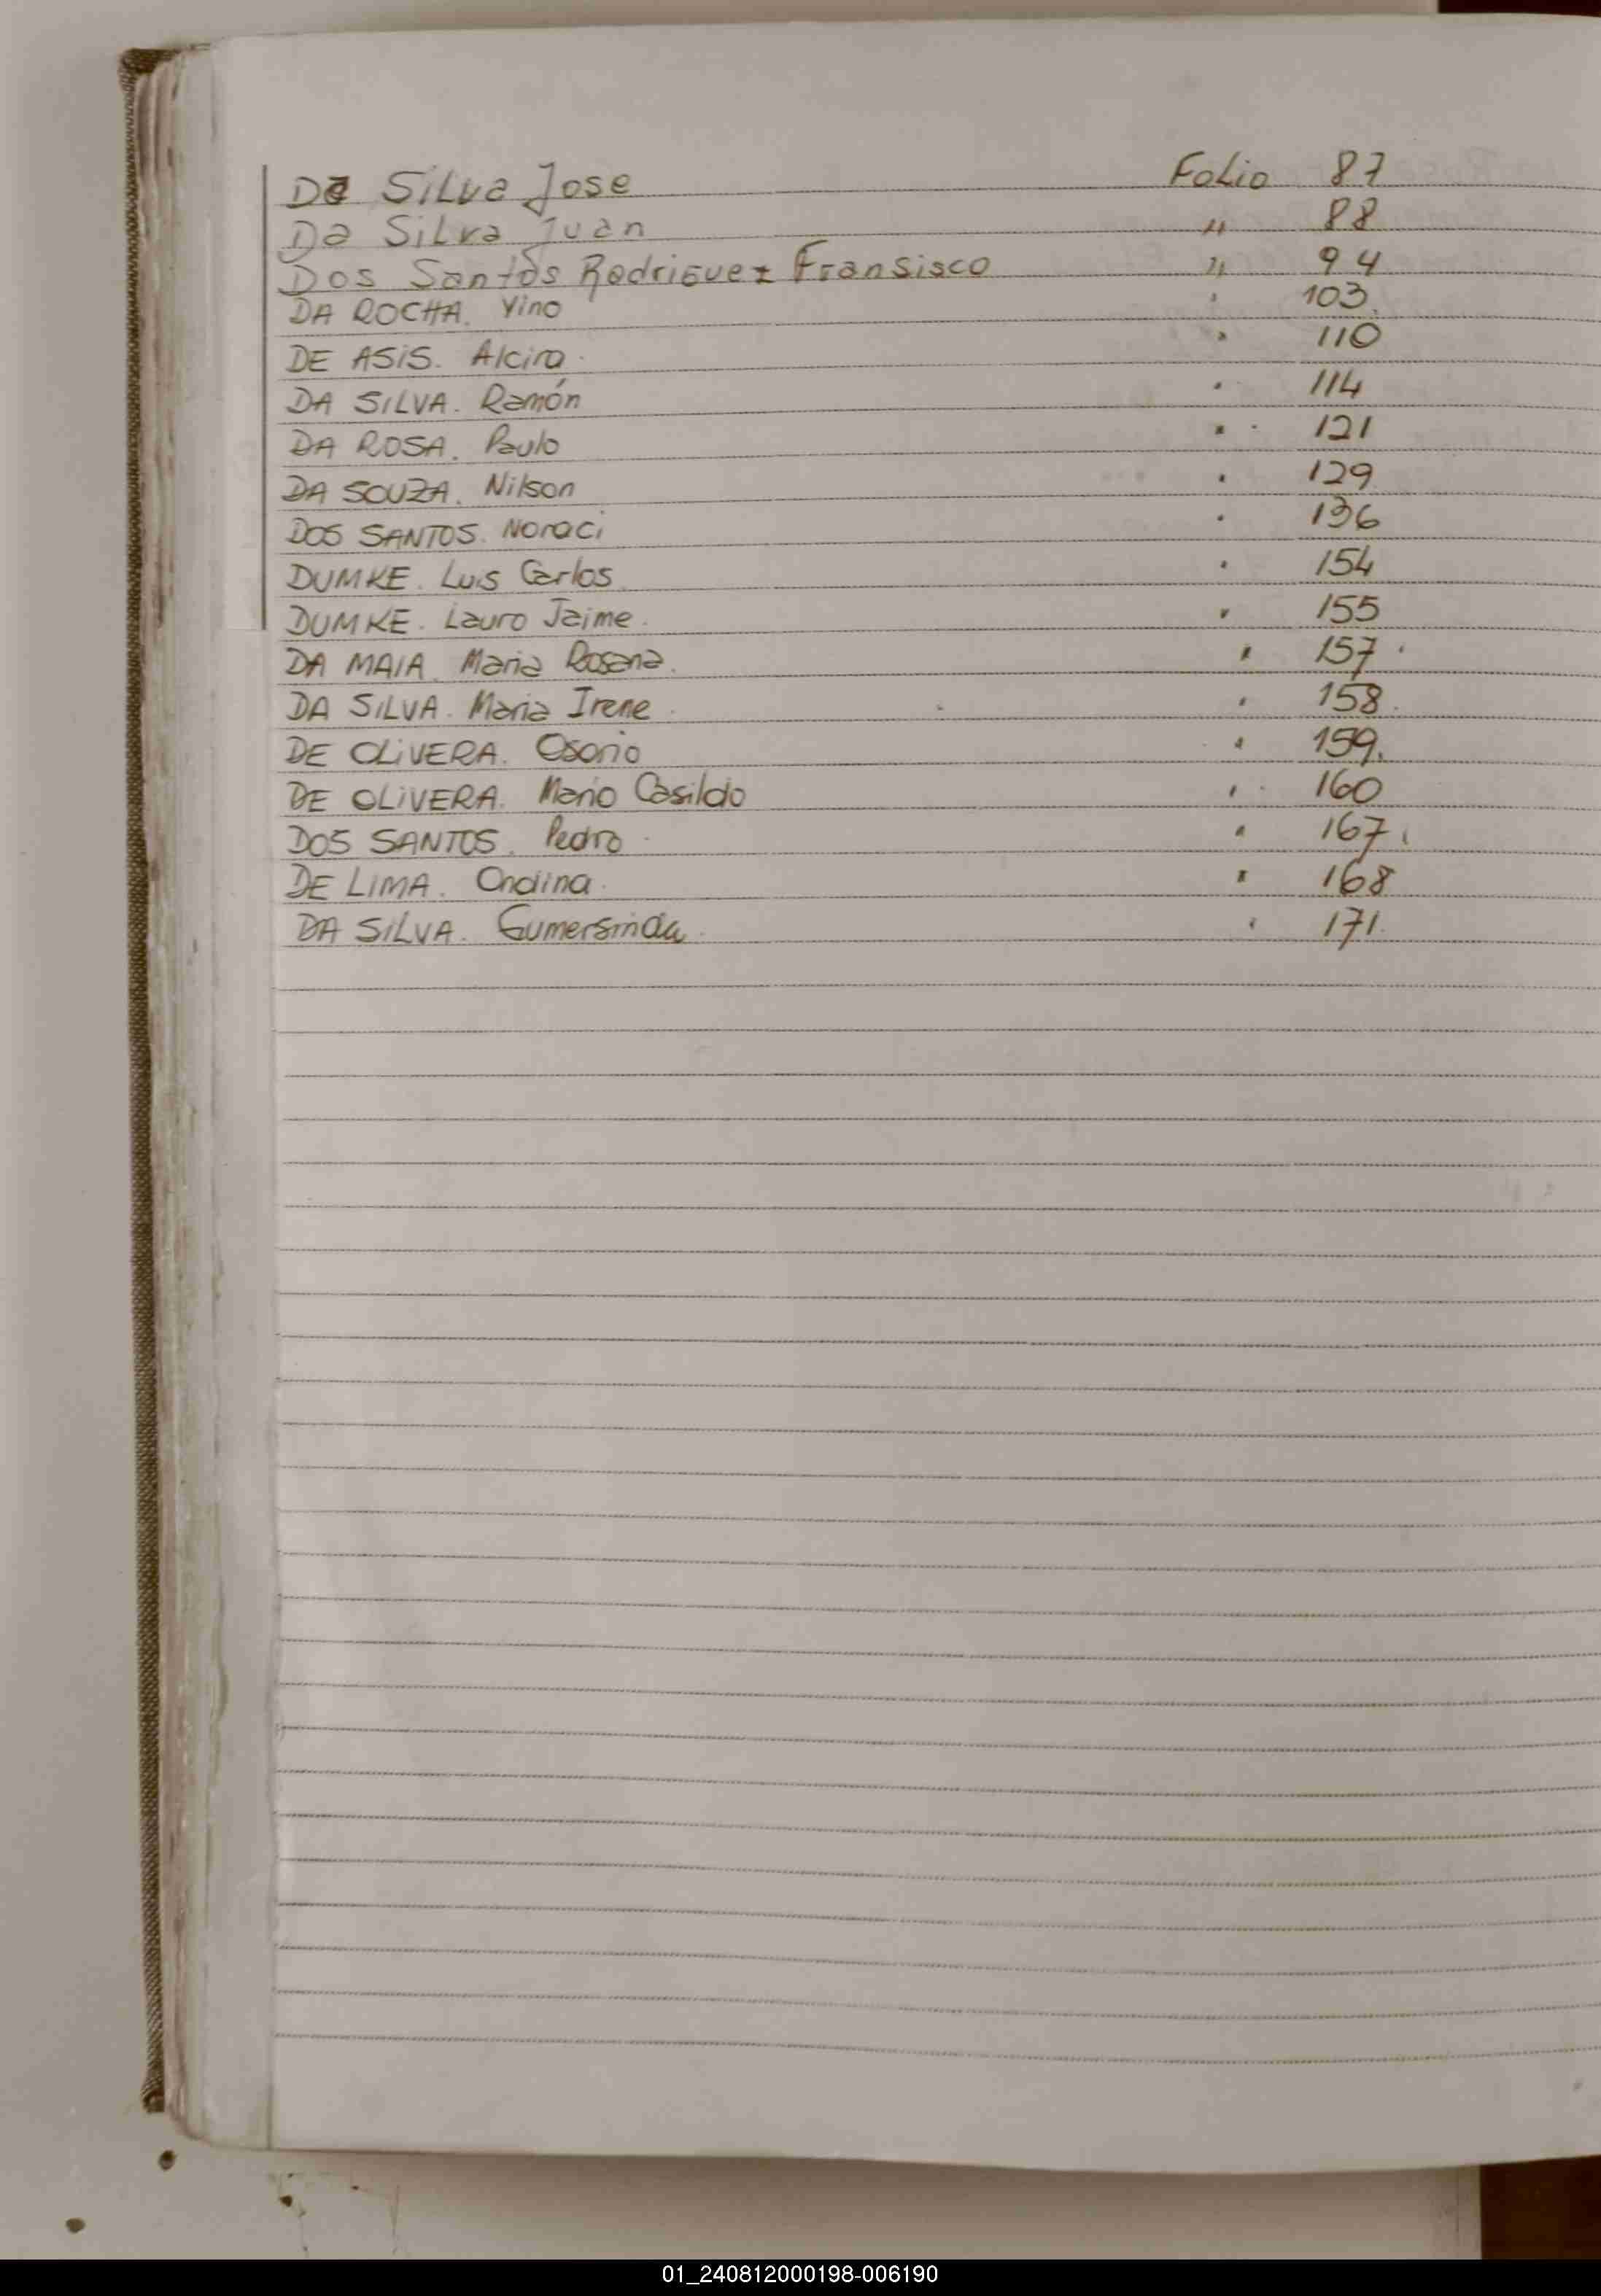 Da Silva Jose Folio 87
Da Silva Juan " 88
Dos Santos Rodriguez Fransisco " 94
DA ROCHA. Vino " 103.
DE ASIS. Alcira. " 110
DA SILVA. Ramón " 114
DA ROSA. Paulo " 121
DA SOUZA. Nilson " 129
DOS SANTOS. Noraci " 136
DUMKE. Luis Carlos " 154
DUMKE. Lauro Jaime. " 155
DA MAIA. Maria Rosana. " 157.
DA SILVA. Maria Irene. " 158.
DE OLIVERA. Osorio " 159.
DE OLIVERA. Mario Casildo " 160
DOS SANTOS. Pedro. " 167.
DE LIMA. Ondina. " 168
DA SILVA. Gumersinda. " 171.
01_240812000198-006190